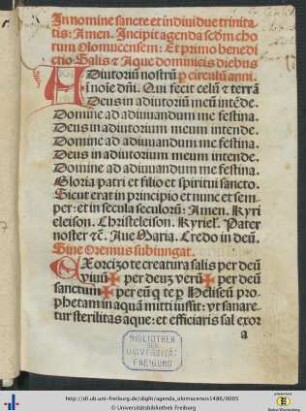 In nomine sancte et individue trinita
tis: Amen. Incipit agenda scd'm cho
rum Olomucensem: Et primo benedi
ctio Salis & Aque dominicis diebus
ADiutoriū nostrū p circulū anni.
i noīe dn̄i. Qui fecit celū & terrā
Deus in adiutoriū meū intēde.
Domine ad adiuuandum me festina.
Deus in adiutorium meum intende.
Domine ad adiuuandum me festina.
Deus in adiutorium meum intende.
Domine ad adiuuandum me festina.
Gloria patri et filio et spiritui sancto.
Sicut erat in principio et nunc et sem
per: et in secula seculorū: Amen. Kyri
eleison. Christeleison. Kyriel'. Pater
noster &c̄. Aue Maria. Credo in deū.
Sine Oremus subiungat.
EXorcizo te creatura salis per deū
viuū ✠ per deuȝ verū ✠ per deū
sanctum ✠ per eū q te p Heliseū pro
phetam in aquā mitti iussit: vt sanare
tur sterilitas aque: et efficiaris sal exor
a
BIBLIOTHEK
DER
UNIVERSITÄT
FREIBURG
http://dl.ub.uni-freiburg.de/diglit/agenda_olomucensis1486/0005
© Universitätsbibliothek Freiburg